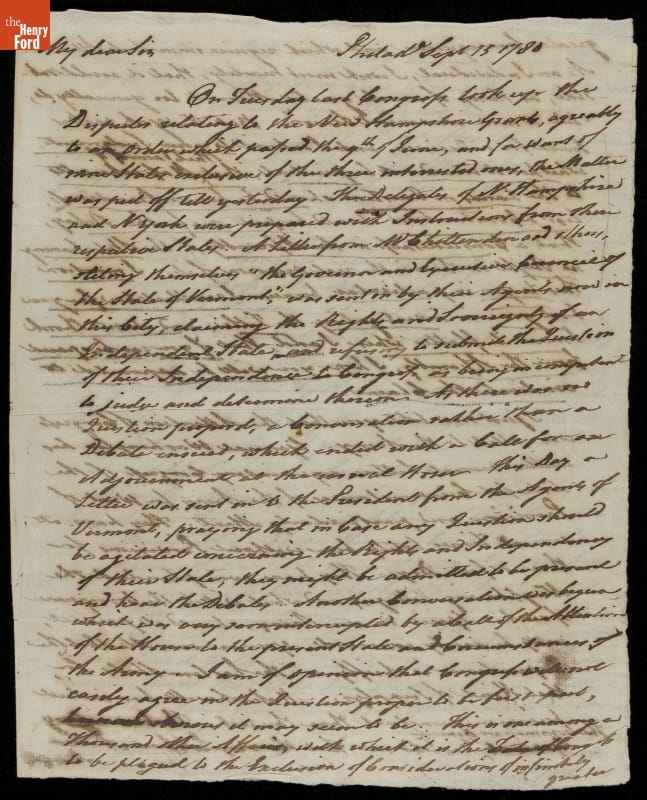 the
Henry
Ford
My dear Sir
Philada Sept 15 1780
On Tuesday last Congress took up the
Disputes relating to the New Hampshire Grants, agreeably
to an order which passed the 9th of June, and for want of
nine States exclusive of the three interested ones, the Matter
was put off till yesterday. The Delegates of N. Hampshire
and N York were prepared with Instructions from their
respective States. A Letter from Mr Chittenden and others,
stiling themselves "the Governor and Executive Council of
the State of Vermont," was sent in by their Agents now in
this City, claiming the Rights and Sovereignty of an
Independent State, and refusing to submit the Question
of their Independence to Congress as being incompetent
to judge and determine thereon. As there was no
Question proposed, a Conversation rather than a
Debate ensued, which ended with a Call for an
Adjournment at the usual Hour. This Day a
Letter was sent in to the President from the Agents of
Vermont, praying that in case any Question should
be agitated concerning the Rights and Independency
of their State, they might be admitted to be present
and hear the Debates. Another Conversation was begun,
which was very soon interrupted by a Call of the Attention
of the House to the present State and Circumstances of
the Army. I am of opinion that Congress will not
easily agree in the Question proper to be first put,
it may seem to be. This is one among a
Thousand other Affairs, with which it is the of Congs to
be plagued to the Exclusion of Considerations of infinitely
greater